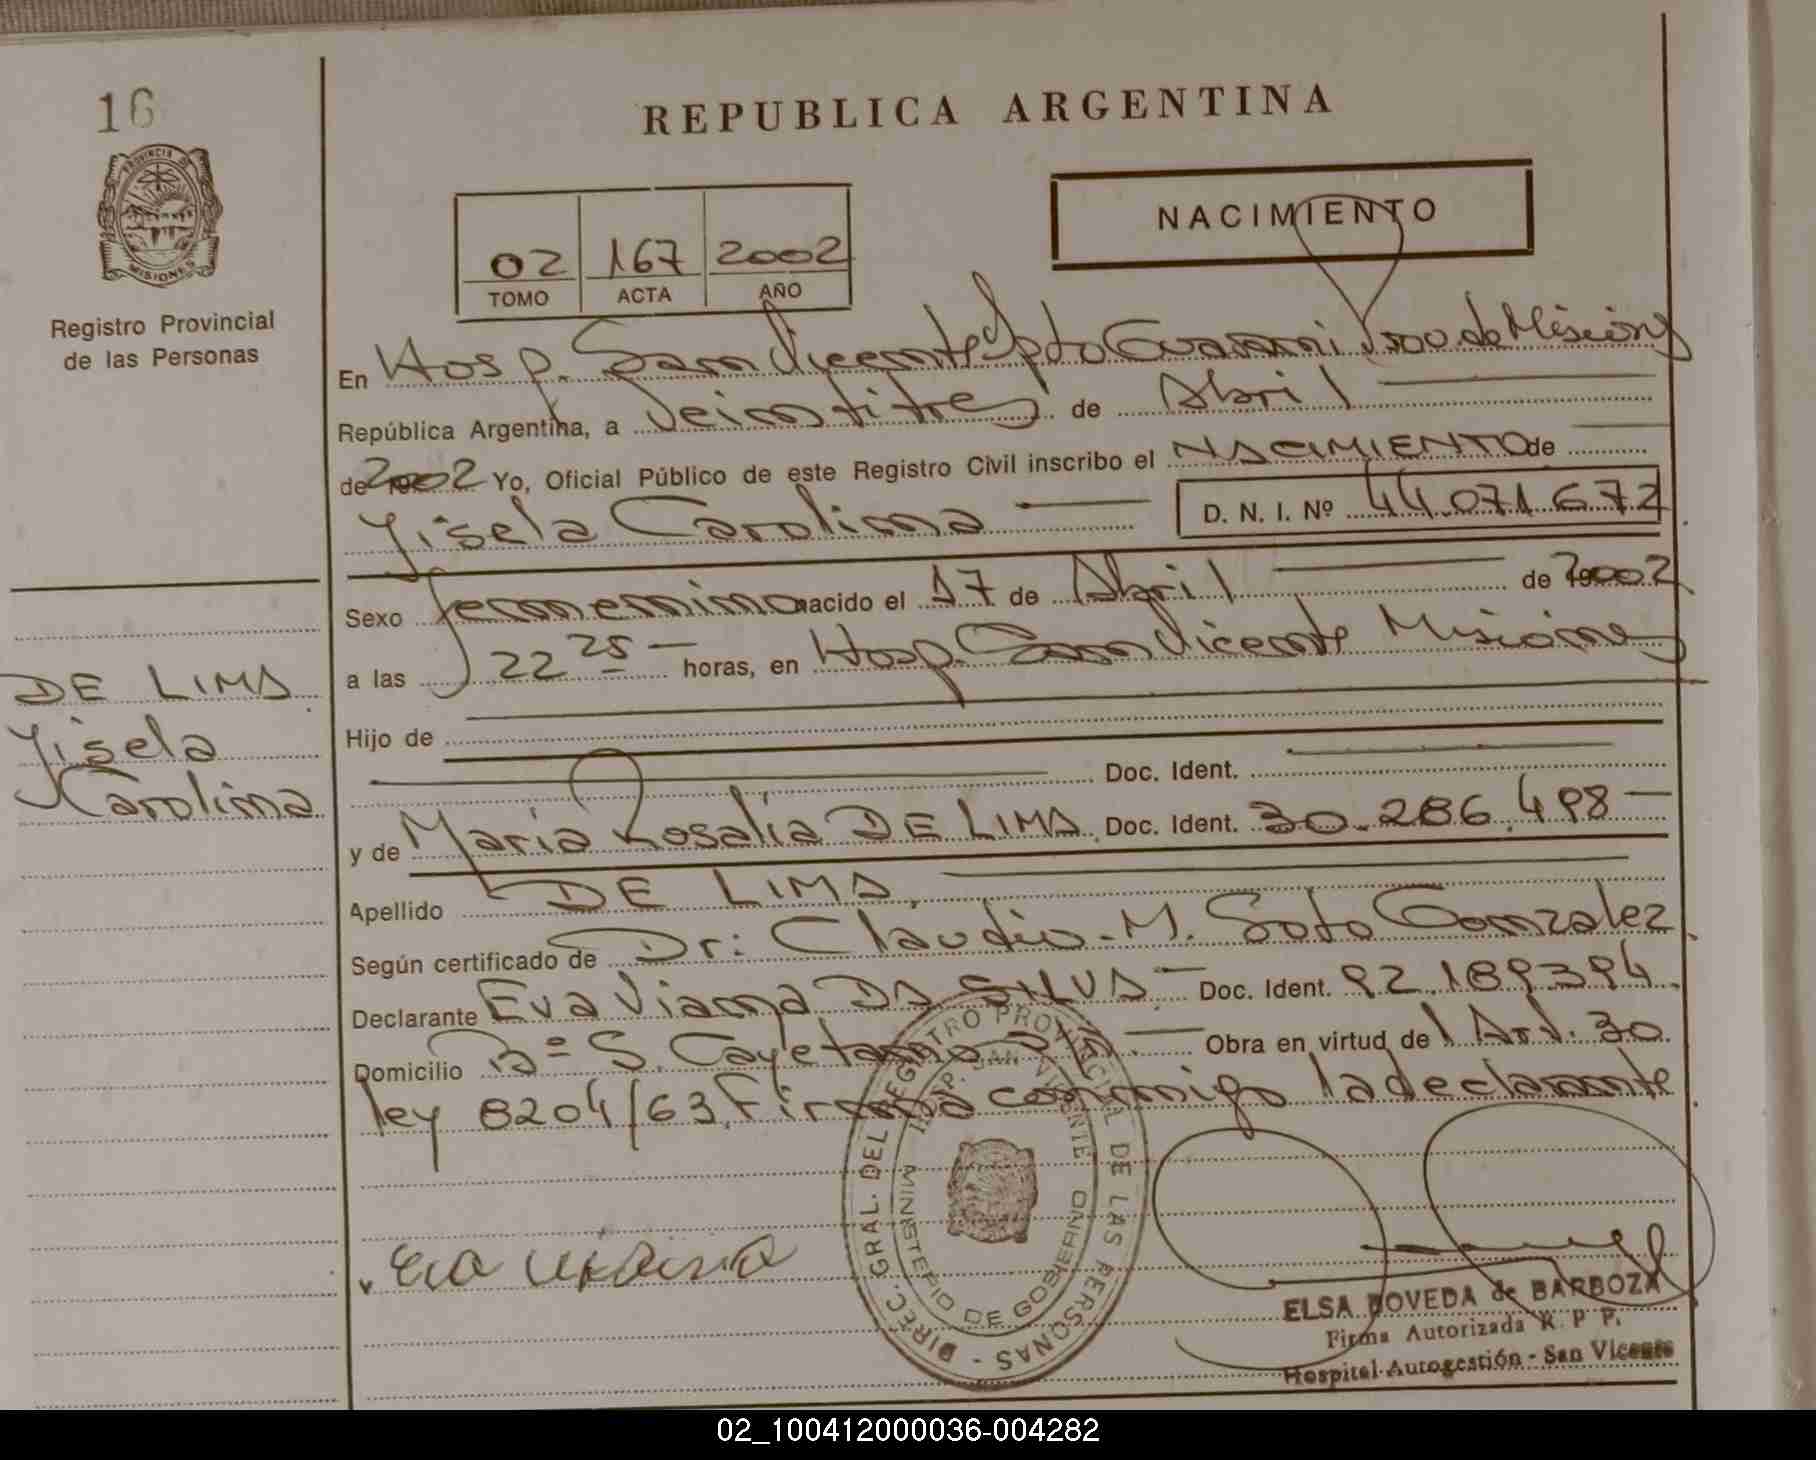 16
PROVINCIA DE
MISIONES
Registro Provincial
de las Personas
DE LIMA
Gisela
Carolina
REPUBLICA ARGENTINA
02 167 2002
TOMO ACTA AÑO
NACIMIENTO
En Hosp. San Vicente Dpto Guarani de Misiones
República Argentina, a Veintitres de Abril
de 2002 Yo, Oficial Público de este Registro Civil inscribo el NACIMIENTO de
Gisela Carolina D. N. I. Nº 44.071.672
Sexo femenino nacido el 17 de Abril de 2002
a las 22 25 horas, en Hosp. San Vicente Misiones
Hijo de
Doc. Ident.
y de Maria Rosalia DE LIMA Doc. Ident. 30.286.498
Apellido DE LIMA
Según certificado de Dr: Claudio M. Soto Gonzalez
Declarante Eva Viana DA SILVA Doc. Ident. 92.189394
Domicilio Bº S. Cayetano S/N. Obra en virtud del Art. 30
ley 8204/63. Firma conmigo la declarante
DIREC. GRAL. DEL REGISTRO PROVINCIAL DE LAS PERSONAS -
HOSP. SAN VICENTE
MINISTERIO DE GOBIERNO
ELSA POVEDA de BARBOZA
Firma Autorizada R. P. P.
Hospital Autogestión - San Vicente
02_100412000036-004282